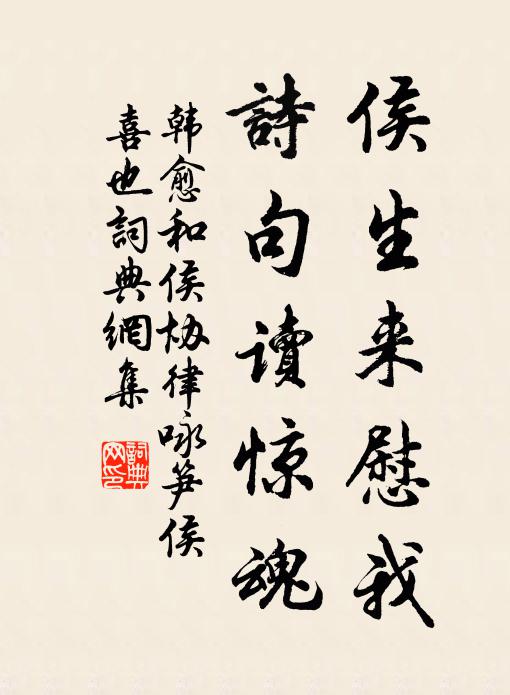 侯生来慰我
詩句讀惊魂
韩愈和侯协律咏笋侯
喜也詞典網集
詞典网印